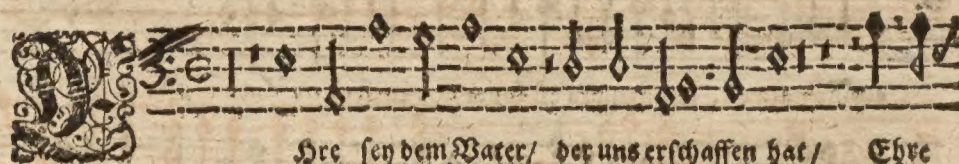 Hre sey dem Vater/ der uns erschaffen hat/ Ehre